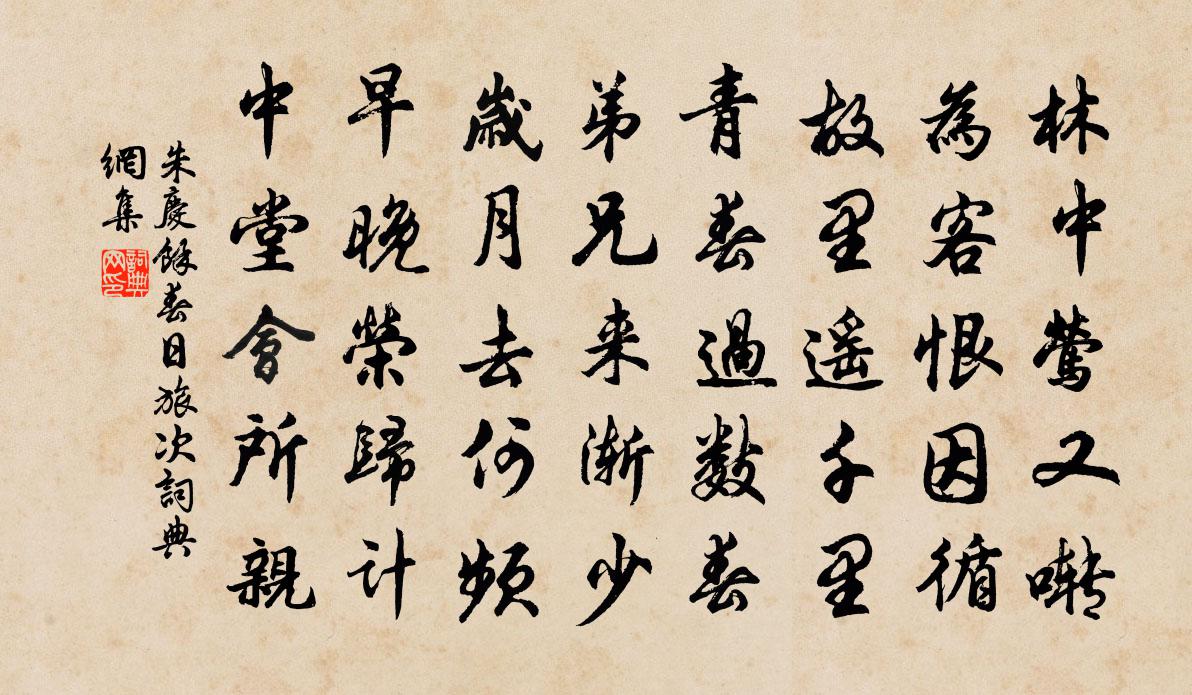 林中莺又啭
為客恨因循
故里遥千里
青春過數春
弟兄来渐少
歲月去何頻
早晚榮歸计
中堂會所親
朱慶餘春日旅次詞典
網集
詞典網印